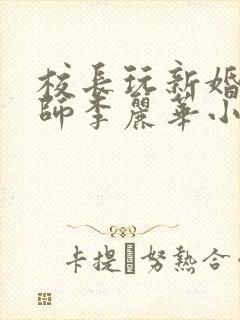 校長玩新婚
師李麗華小
卡提 努熱合